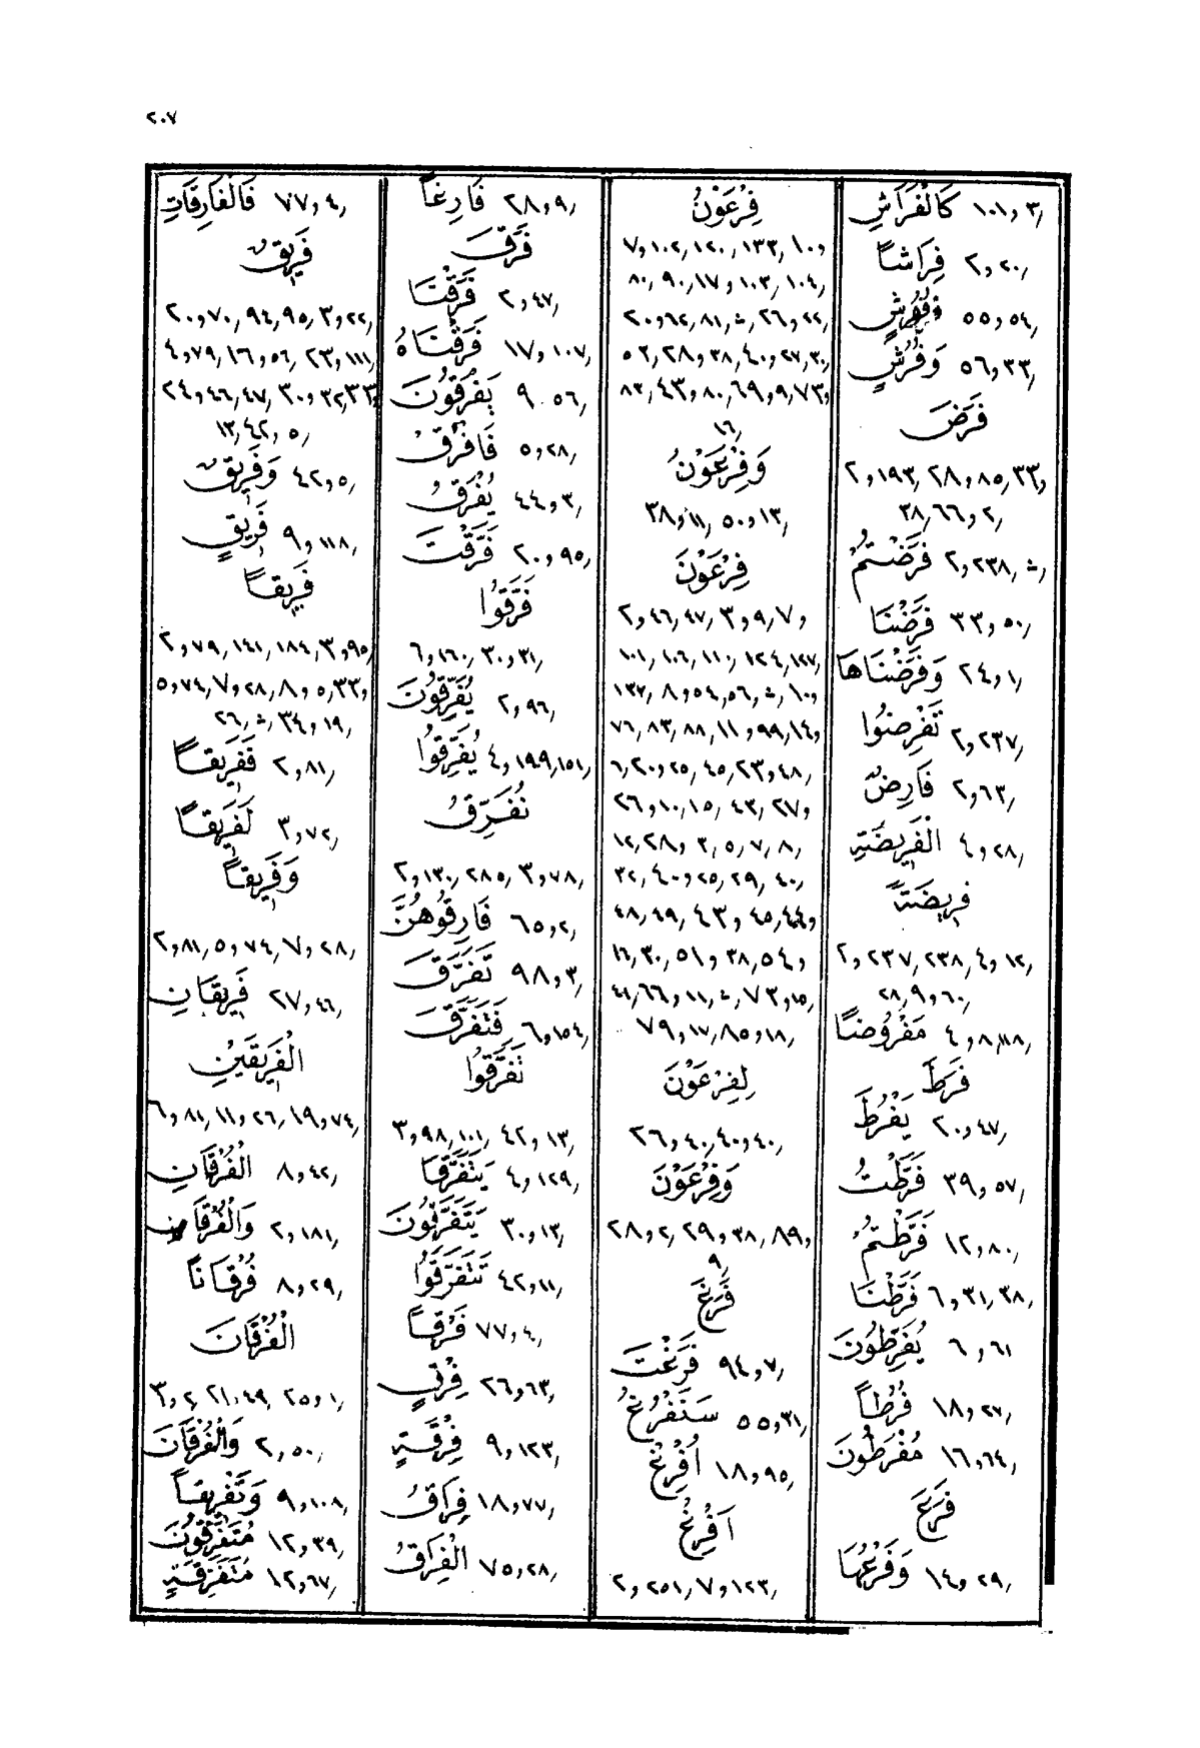 ٢٠٧
كَالْفَرَاشِ ١٠١,٣
فِرَاشاً ٢,٢٠
٥٥,٥٤
وَفُرُشٍ ٥٦,٣٣
فَرَضَ
٢,١٩٣, ٢٨,٨٥, ٣٣,
٣٨, ٦٦,٢
فَرَضْتُمْ ٢,٢٣٨
فَرَضْنَا ٣٣,٥٠
وَفَرَضْنَاهَا ٢٤,١
تَفْرِضُوا ٢,٢٣٧
فَارِضٌ ٢,٦٣
الْفَرِيضَةِ ٤,٢٨
فَرِيضَةً
٢,٢٣٧, ٢٣٨, ٤,١٢
٢٨, ٩,٦٠
مَفْرُوضًا ٤,٨,١١٨
فَرَطَ
يَفْرُطَ ٢٠,٤٧
فَرَّطْتُ ٣٩,٥٧
فَرَّطْتُمْ ١٢,٨٠
فَرَّطْنَا ٦,٣١, ٣٨
يُفَرِّطُونَ ٦,٦١
فُرُطاً ١٨,٢٧
مُفْرَطُونَ ١٦,٦٤
فَرَعَ
وَفَرْعُهَا ١٤,٢٩
فِرْعَوْنُ
٧,١٠٢, ١٢٠, ١٣٣, ١٠,
٨٠, ٩٠, ١٧,١٠٣, ١٠٤
وَفِرْعَوْنُ
٣٨,١١, ٥٠,١٣
فِرْعَوْنَ
٢,٤٦, ٤٧, ٣,٩, ٧,
١٠١, ١٠٦, ١١٠, ١٢٤, ١٢٧
٧٦, ٨٣, ٨٨, ١١,٩٩, ١٤,
٦,٢٠, ٢٥, ٤٥, ٢٣,٤٨
٢٦,١٠, ١٥, ٤٣, ٢٧,
١٢, ٢٨,٣, ٥, ٧, ٨
٣٢, ٤٠,٢٥, ٢٩, ٤٠
٤٨, ٤٩, ٤٣,٤٥, ٤٤,
١٦, ٣٠, ٥١,٣٨, ٥٤,
٧٩,١٧, ٨٥,١٨
لِفِرْعَوْنَ
٢٦,٤٠, ٤٠,٤٠
وَفِرْعَوْنَ
٢٨,٢, ٢٩,٣٨, ٨٩,
٩
فَرَغَ
فَرَغْتَ ٩٤,٧
سَنَفْرُغُ ٥٥,٣١
أُفْرِغْ ١٨,٩٥
اَفْرِغْ
٢,٢٥١, ٧,١٢٣
فَارِغاً ٢٨,٩
فَرَقَ
فَرَقْنَا ٢,٤٧
فَرَقْنَاهُ ١٧,١٠٧
يَفْرَقُونَ ٩,٥٦
فَافْرُقْ ٥,٢٨
يُفْرَقُ ٤٤,٣
فَرَّقْتَ ٢٠,٩٥
فَرَّقُوا
٦,١٦٠, ٣٠,٣١
يُفَرِّقُونَ ٢,٩٦
يُفَرِّقُوا ٤,١٤٩, ١٥١
نُفَرِّقُ
٢,١٣٠, ٢٨٥, ٣,٧٨
فَارِقُوهُنَّ ٦٥,٢
تَفَرَّقَ ٩٨,٣
فَتَفَرَّقَ ٦,١٥٤
تَفَرَّقُوا
٣,٩٨, ١٠١, ٤٢,١٣
يَتَفَرَّقَا ٤,١٢٩
يَتَفَرَّقُونَ ٣٠,١٣
تَتَفَرَّقُوا ٤٢,١١
فَرْقاً ٧٧,٤
فِرْقٍ ٢٦,٦٣
فِرْقَةٍ ٩,١٢٣
فِرَاقُ ١٨,٧٧
الْفِرَاقُ ٧٥,٢٨
فَالْفَارِقَاتِ ٧٧,٤
فَرِيقٌ
٢٠,٧٠, ٩٤, ٩٥, ٣,٢٢
٤,٧٩, ١٦,٥٦, ٢٣,١١١
٢٤,٤٦, ٤٧, ٣٠,٣٢, ٣٣
١٣, ٤٢,٥
وَفَرِيقٌ ٤٢,٥
فَرِيقٍ ٩,١١٨
فَرِيقاً
٢,٧٩, ١٤١, ١٨٤, ٣,٩٥
٥,٧٤, ٧,٢٨, ٨,٥, ٣٣,
فَفَرِيقاً ٢,٨١
لَفَرِيقاً ٣,٧٢
وَفَرِيقاً
٢,٨١, ٥,٧٤, ٧,٢٨
فَرِيقَانِ ٢٧,٤٦
الْفَرِيقَيْنِ
٦,٨١, ١١,٢٦, ١٩,٧٤
الْفُرْقَانِ ٨,٤٢
وَالْفُرْقَانِ ٢,١٨١
فُرْقَاناً ٨,٢٩
الْفُرْقَانَ
٣,٢, ٢١,٤٩, ٢٥,١
وَالْفُرْقَانَ ٢,٥٠
وَتَفْرِيقاً ٩,١٠٨
مُتَفَرِّقُونَ ١٢,٣٩
مُتَفَرِّقَةٍ ١٢,٦٧